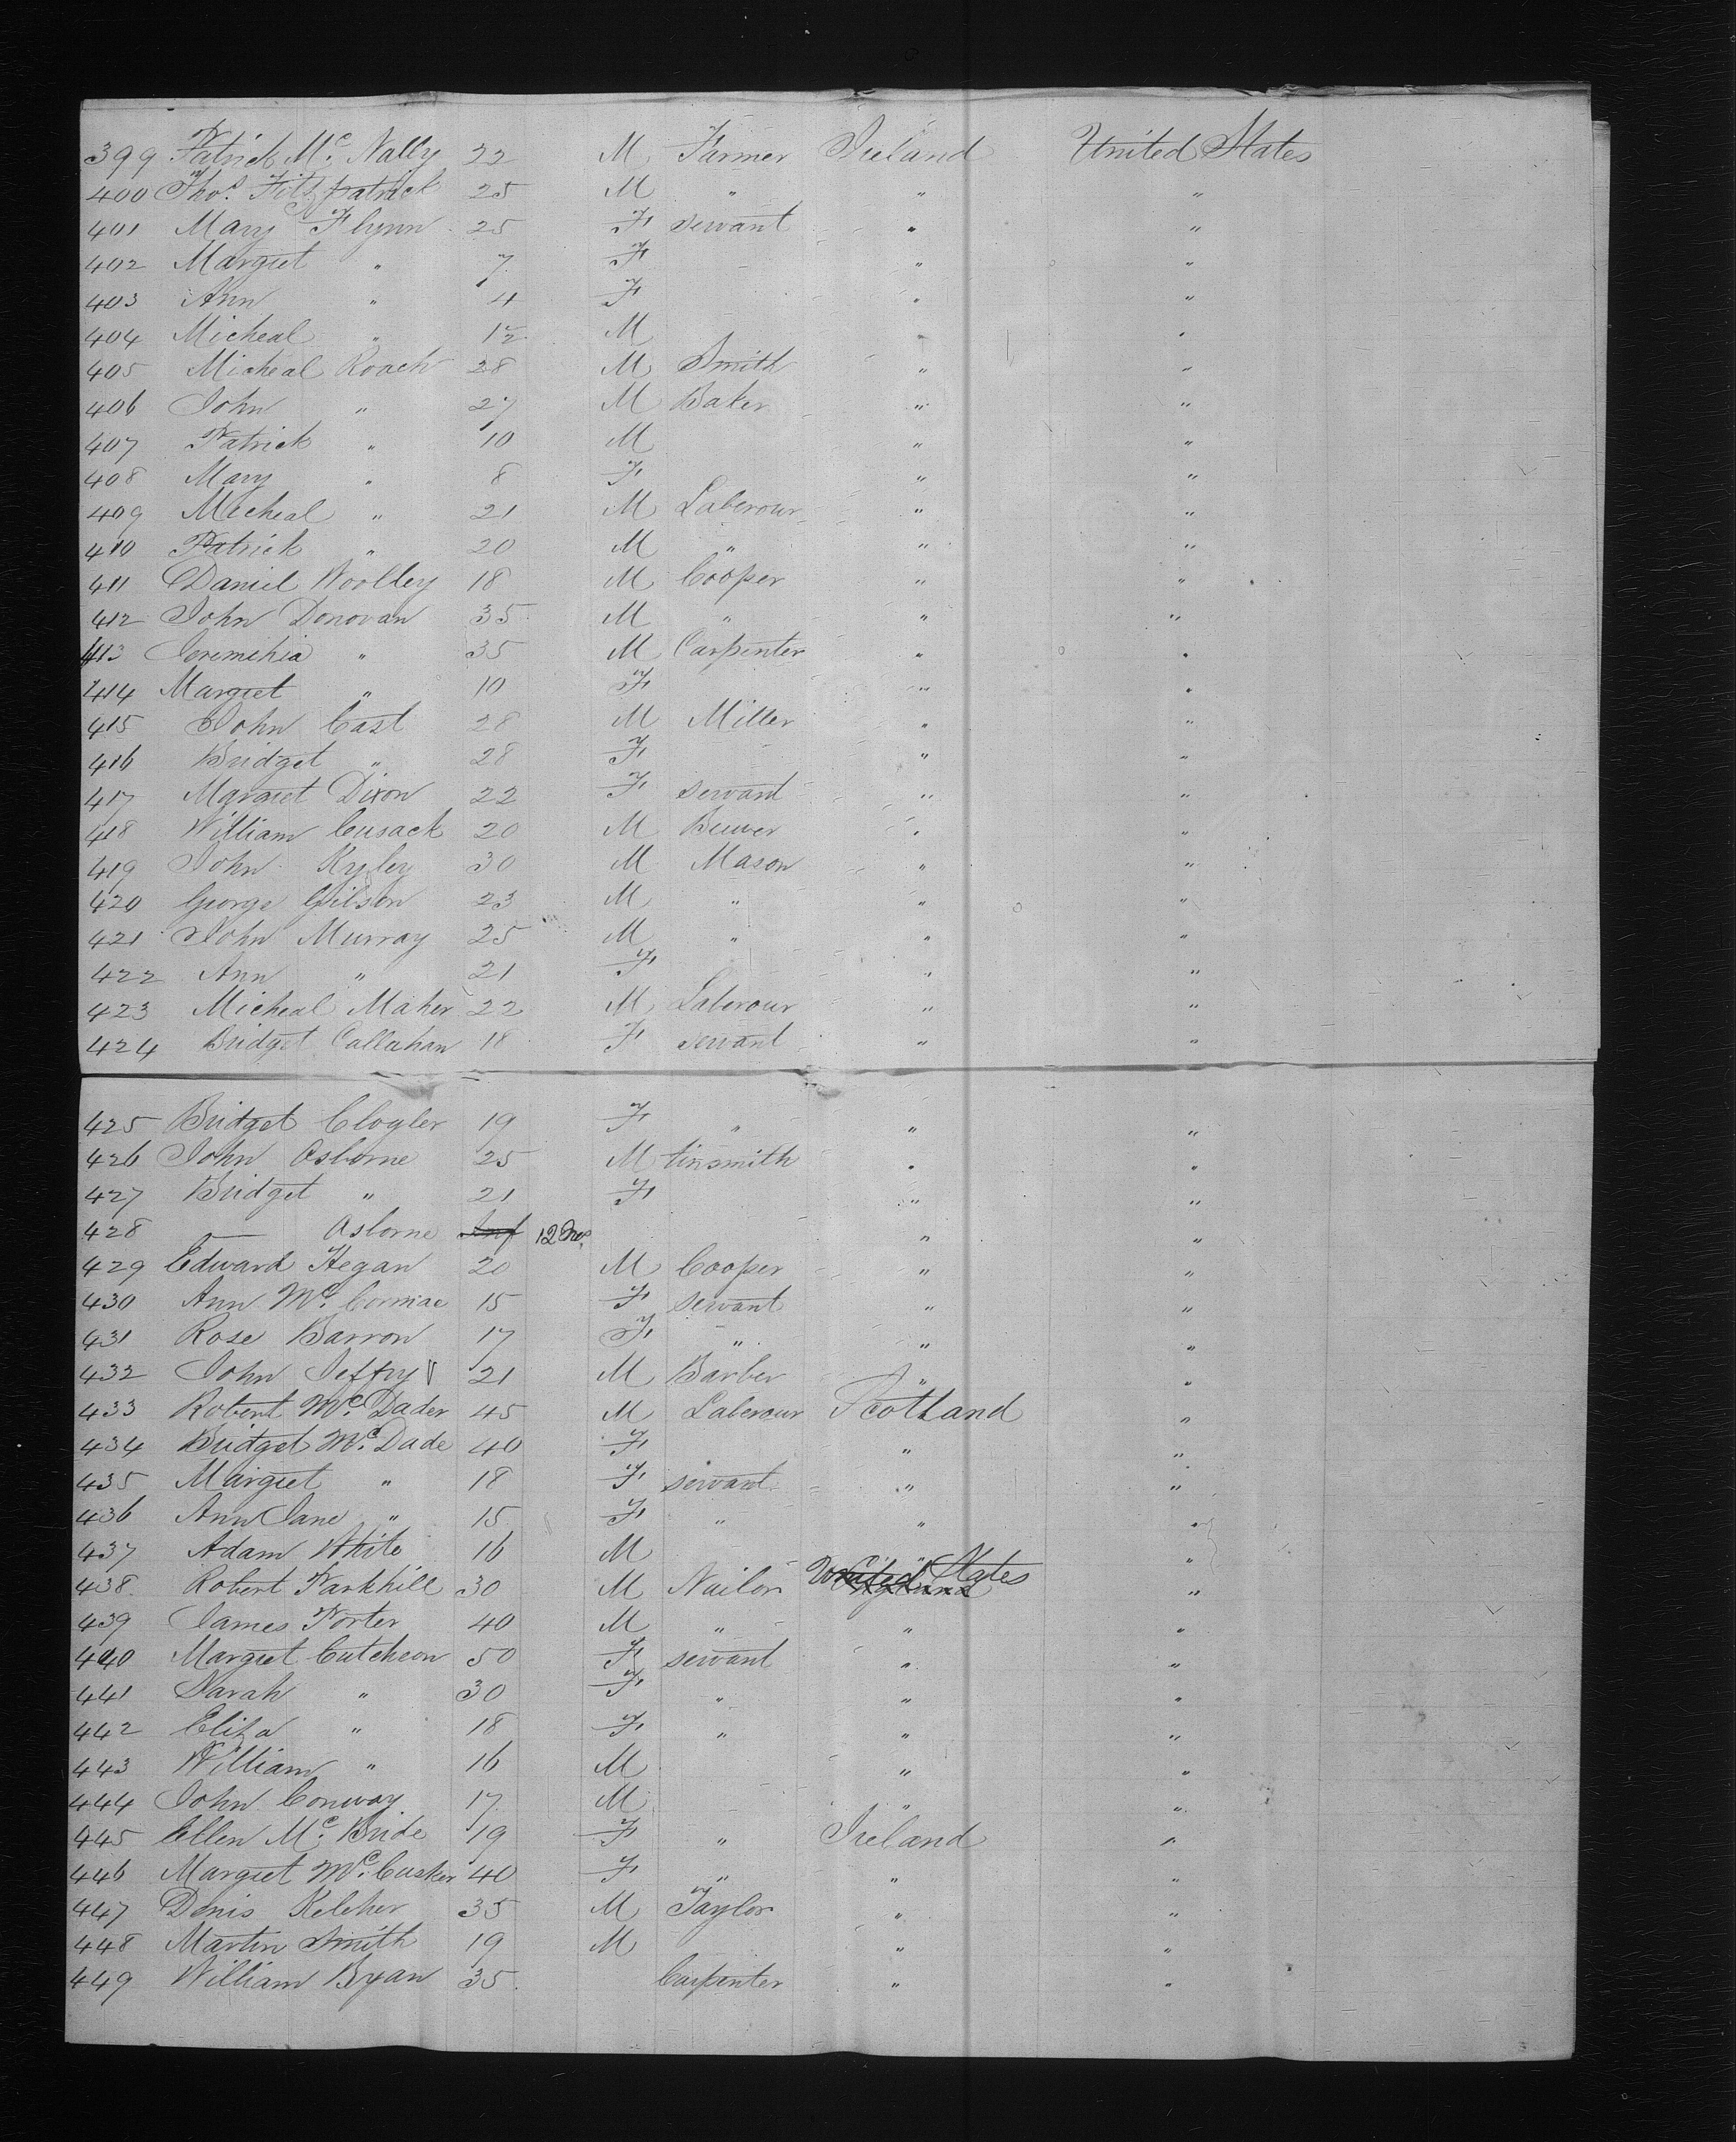 399 Patrick Mc. Nally 22 M Farmer Ireland United States
400 Thos. Fitzpatrick 25 M " " "
401 Mary Flynn 25 F servant " "
402 Margret " 7 F " "
403 Ann " 4 F " "
404 Micheal " 12 M " "
405 Micheal Roach 28 M Smith " "
406 John " 27 M Baker " "
407 Patrick " 10 M " "
408 Mary " 8 F " "
409 Micheal " 21 M Laberour " "
410 Patrick " 20 M " " "
411 Daniel Woolley 18 M Cooper " "
412 John Donovan 35 M " " "
413 Jeremihia " 35 M Carpenter " "
414 Margret " 10 F " "
415 John Cast 28 M Miller " "
416 Bridget " 28 F " "
417 Margret Dixon 22 F servant " "
418 William Cusack 20 M Brewer " "
419 John Ryley 30 M Mason " "
420 George Gilson 23 M " " "
421 John Murray 25 M " " "
422 Ann " 21 F " "
423 Micheal Maher 22 M Laberour " "
424 Bridget Callahan 18 F servant " "
425 Bridget Clogler 19 F " " "
426 John Osborne 25 M tinsmith " "
427 Bridget " 21 F " "
428 — Osborne Inf 12 Mos. " "
429 Edward Hegan 20 M Cooper " "
430 Ann Mc. Cormac 15 F servant " "
431 Rose Barron 17 F " " "
432 John Jeffry 21 M Barber " "
433 Robert Mc. Dader 45 M Laberour Scotland "
434 Bridget Mc. Dade 40 F " "
435 Margret " 18 F servant " "
436 Ann Jane " 15 F " " "
437 Adam White 16 M " "
438 Robert Parkhill 30 M Nailor United States "
439 James Porter 40 M " " "
440 Margret Cutcheon 50 F servant " "
441 Sarah " 30 F " " "
442 Eliza " 18 F " " "
443 William " 16 M " "
444 John Conway 17 M " "
445 Ellen Mc. Bride 19 F " Ireland "
446 Margret Mc. Cusker 40 F " " "
447 Denis Keleher 35 M Taylor " "
448 Martin Smith 19 M " "
449 William Byan 35 Carpenter " "